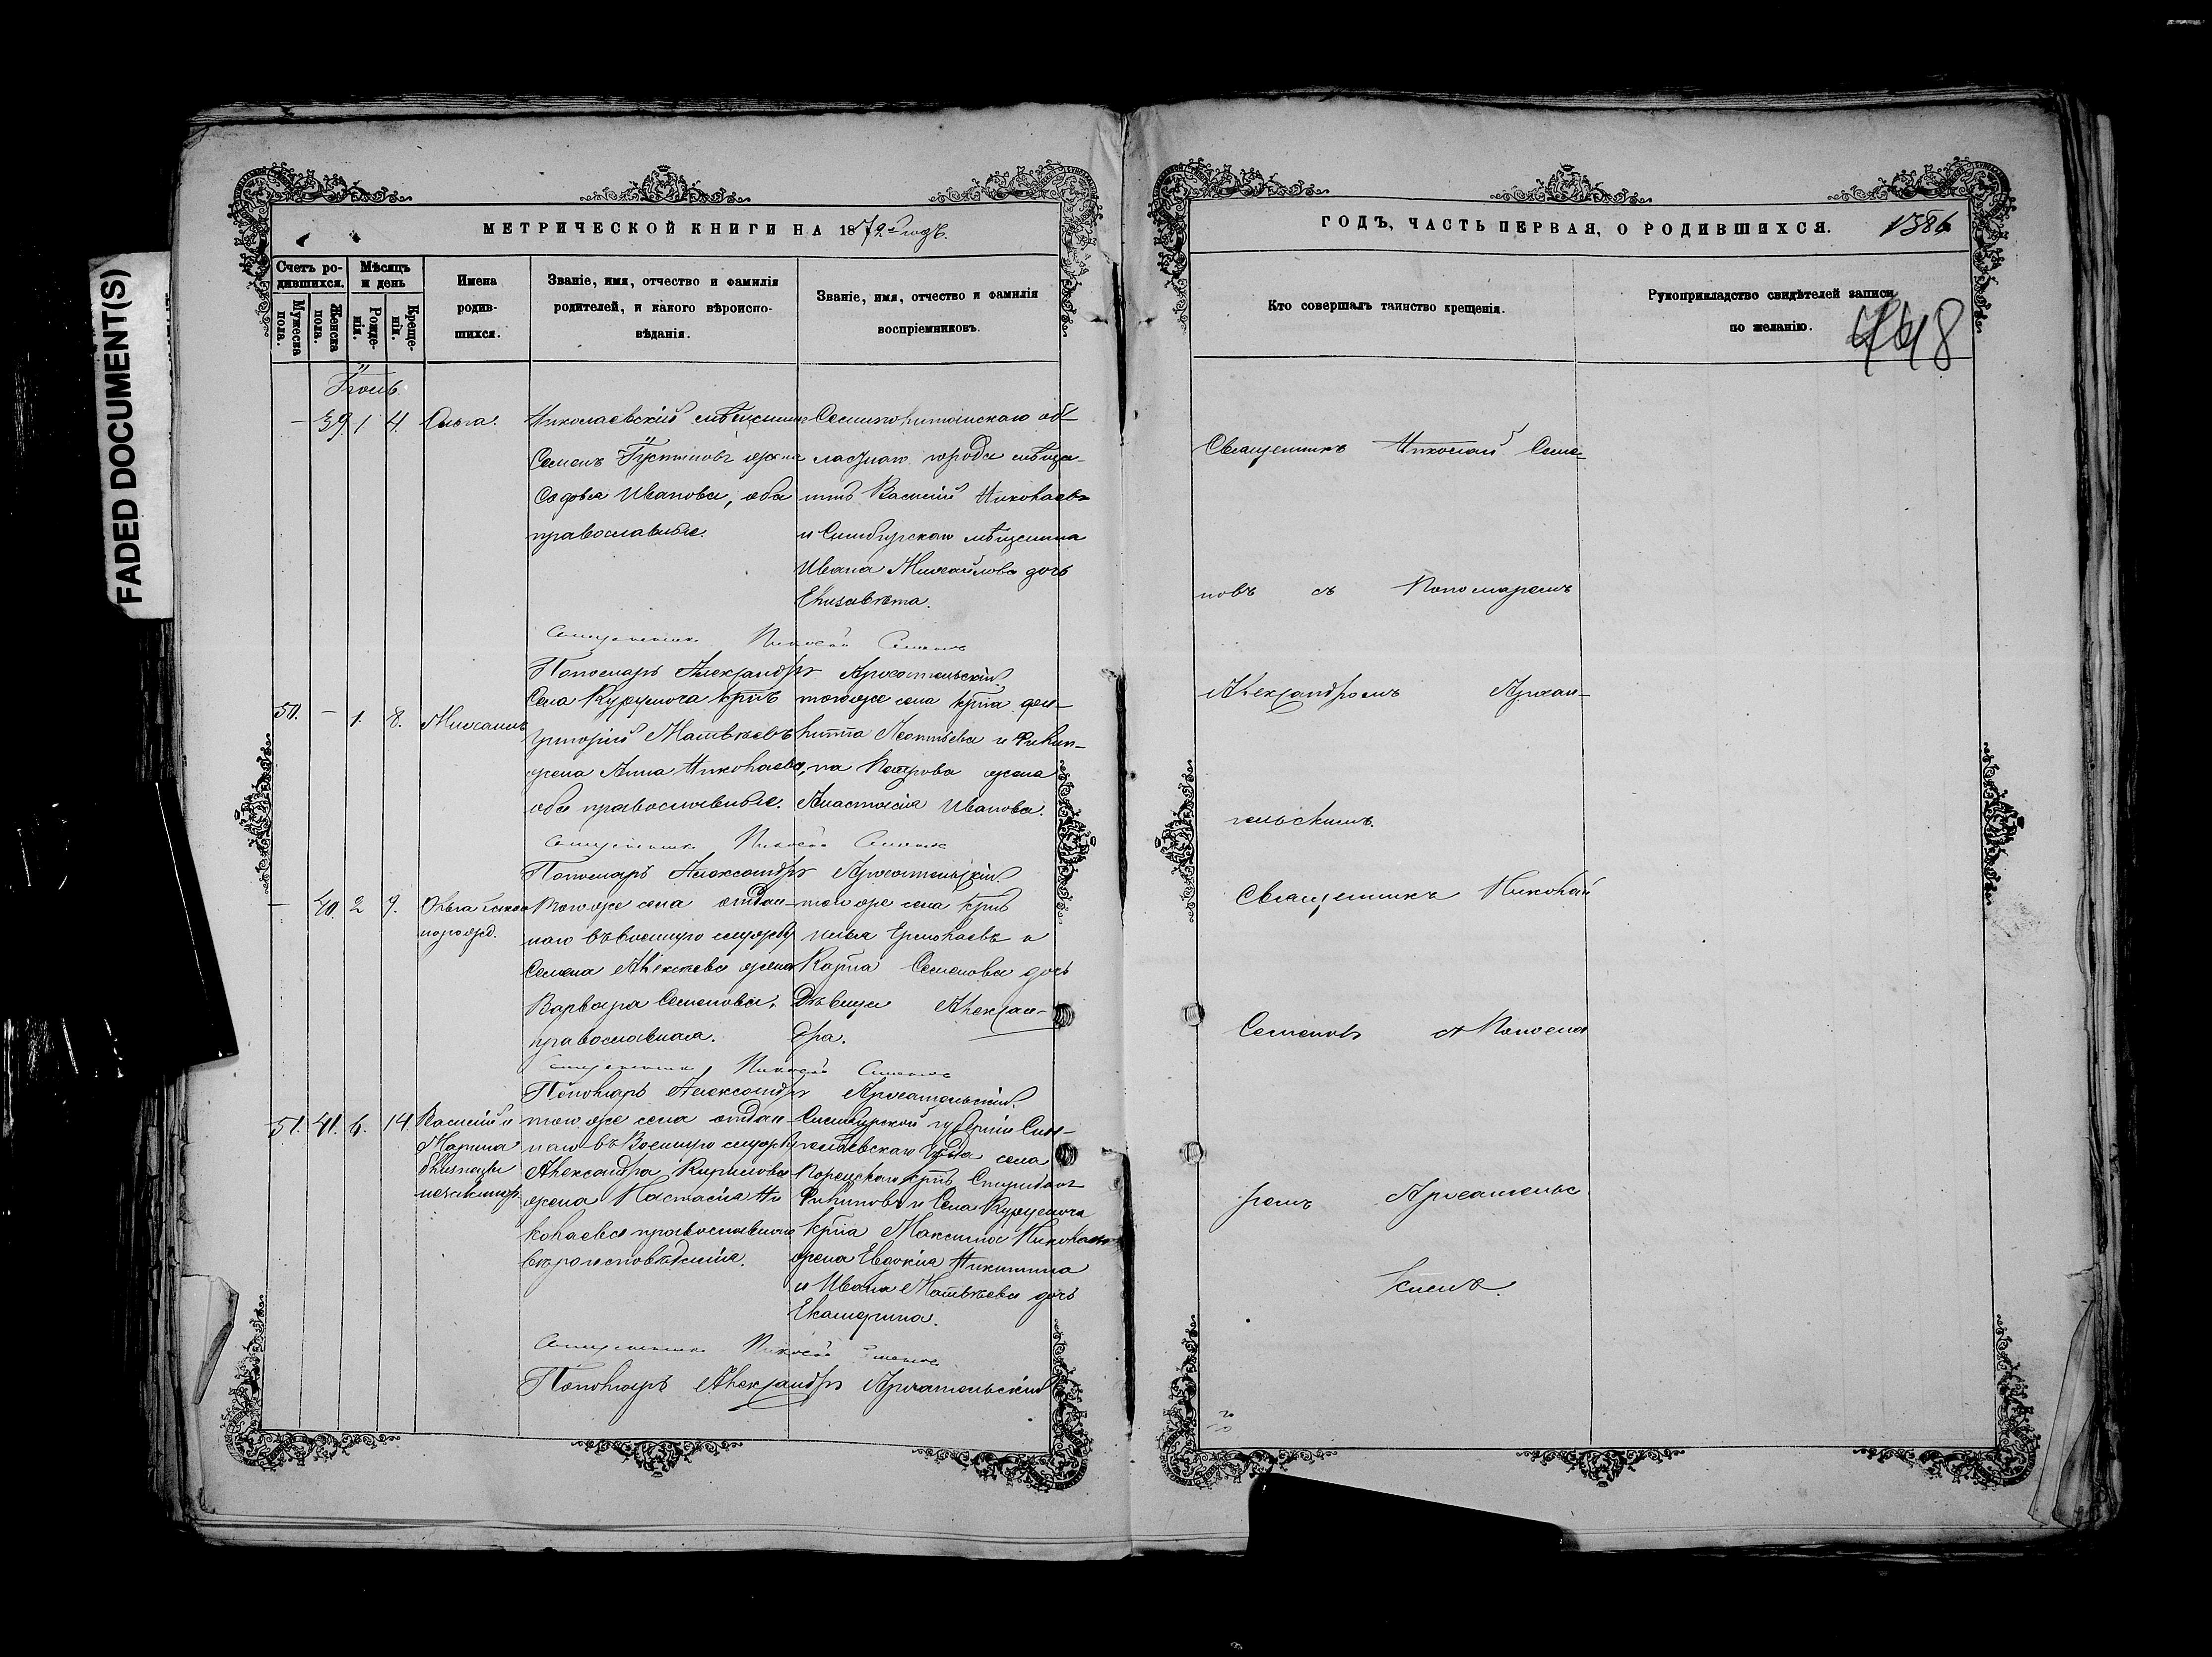 FADED DOCUMENT(S)
МЕТРИЧЕСКОЙ КНИГИ НА 1879й годъ.
Счетъ ро-
дившихся.
Мужеска
пола.
Женска
пола.
Мѣсяцъ
и день
Рожде-
нія.
Креще-
нія.
Имена
родив-
шихся.
Званіе, имя, отчество и фамилія
родителей, и какого вѣроиспо-
вѣданія.
Званіе, имя, отчество и фамилія
воспріемниковъ.
Іюль
39. 1 4. Ольга.
Николаевскій мѣщанинъ
Семенъ Густиновъ жена
Софья Иванова, оба
православные.
города мѣща-
нинъ Василій Николаевъ
и Симбирскаго мѣщанина
Ивана Михайлова дочь
Елизавета.
Священникъ Николай Семеновъ
Пономарь Александръ Архангельскій
50. — 1. 8. Михаилъ
Села Курумоча крнъ
Григорій Матвѣевъ
жена Анна Николаева,
оба православные.
тогоже села крна
Леонтьева и Филип-
па Петрова жена
Анастасія Иванова.
Священникъ Николай Семеновъ
Пономарь Александръ Архангельскій
— 40. 2 9. Ольга
того же села отдан-
наго въ военную службу
Семена Алексѣева жена
Варвара Семенова,
православная.
того же села крнъ
Ермолаевъ и
Карпа Семенова дочь
Дѣвица Алексан-
дра.
Священникъ Николай Семеновъ
Пономарь Александръ Архангельскій
51. 41. 6. 14. Василій и
Марина
близнецы
того же села отдан-
наго въ Военную службу
Александра Кирилова
жена Настасія Ни-
колаева православнаго
вѣроисповѣданія.
Симбирской губерніи Син-
гелѣевскаго уѣзда села
крнъ Спиридонъ
Филиповъ и Села Курумоча
крна Максима Николаева
жена Евдокія Никитина
и Ивана Матвѣева дочь
Екатерина.
Священникъ Николай Семеновъ
Пономарь Александръ Архангельскій
ГОДЪ, ЧАСТЬ ПЕРВАЯ, О РОДИВШИХСЯ. 1386
Кто совершалъ таинство крещенія.
Рукоприкладство свидѣтелей записи
по желанію.
Священникъ Николай Семе-
новъ съ Пономаремъ
Александромъ Архан-
гельскимъ.
Священникъ Николай
Семеновъ съ Понома
ремъ Архангельс
кимъ.